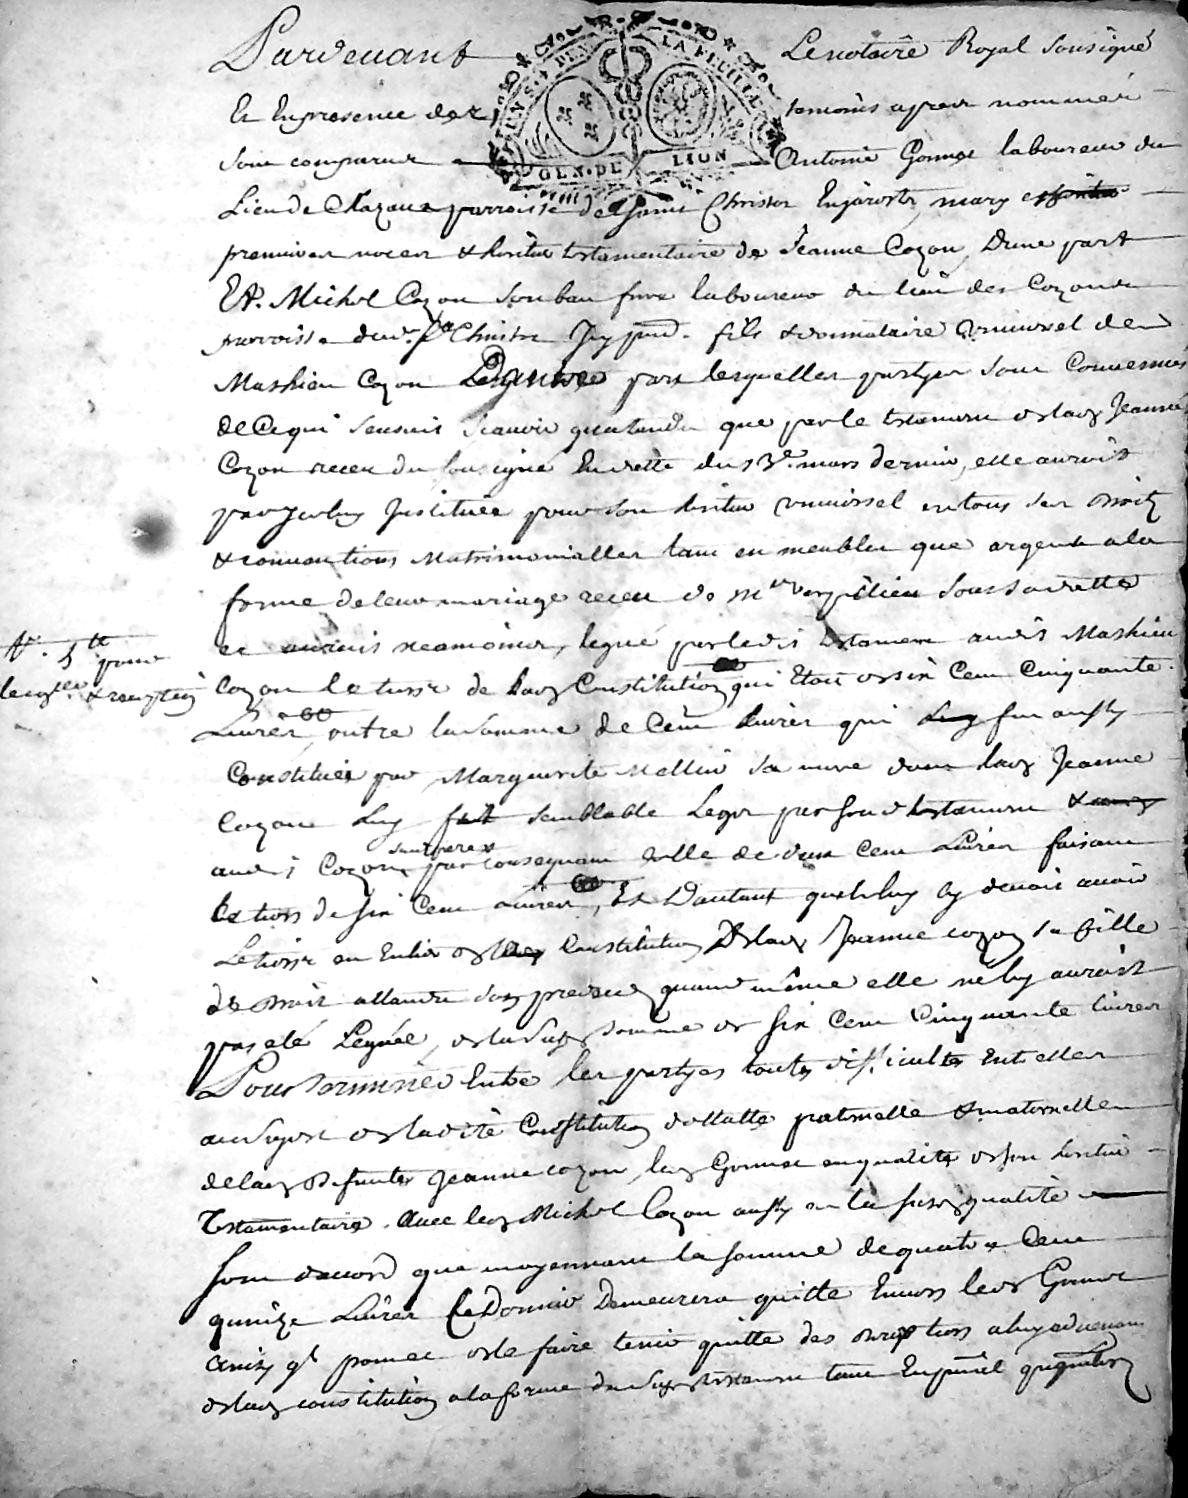 Pardevant Le notaire Royal Soussigné
Et En presence des temoins apres nommés
Sont comparus Antoine Gonnet laboureur du
Lieu de Chazaux parroisse de Saint Christor En jarests, mary
premieres noces & heritier testamentaire de Jeanne Cozon, Dune part
Et. Michel Cozon Son beau frere laboureur du lieu des Cozon
parroisse dud. St Christor Icy pnt. fils & donnataire universel de
Mathieu Cozon Dautre part lesquelles partyes Sont Convenues
de Ce qui Sensuit Scavoir quattendu que par le testament de lad Jeanne
Cozon receu du Soussigné En datte du 13e. mars dernier, elle auroit
par Iceluy Instituée pour son heritier universel en tous ses droits
& conventions Matrimonialles tant en meubles que argent a la
forme de leur mariage receu de Me Verpilieu Sous Sa datte
et auroit neamoins, legué par ledit testament audit Mathieu
Cozon le tiers de lad Constitution qui Etoit de six Cent Cinquante
Livres, outre la Somme de Cent Livres qui Luy fut aussy
Constituée par Marguerite Mellier Sa mere dont lad Jeanne
Cozon Luy fait Semblable Legat par Sond testament &
audit Cozon Son pere par consequant celle de deux Cent Livres faisant
le tiers de six Cent Livres, Et Dautant quil luy devoit avoir
Le tiers en Entier de Constitution De lad Jeanne Cozon Sa fille
de droit attendu Son predeces quand même elle ne luy auroit
pas eté Leguée, de la Susd Somme de six Cent Cinquante livres
Pour Terminer Entre les partyes toutes difficultes Entelles
au Sujet de ladite Constitution dottalle paternelle & maternelle
de lad Defunte Jeanne Cozon, led Gonnet en qualité de son heritier
Testamentaire. Avec led Michel Cozon aussy en la susd qualité
Sont daccord que moyennant la Somme de quatre Cent
quinze Livres Ce Dernier Demeurera quitte Envers led Gonnet
Ainsy ql promet de le faire tenir quitte des tiers a luy advenant
de lad constitution a la forme du Susd testament tant En pnal
N. 5tt pour
& reception
GEN. DE LION